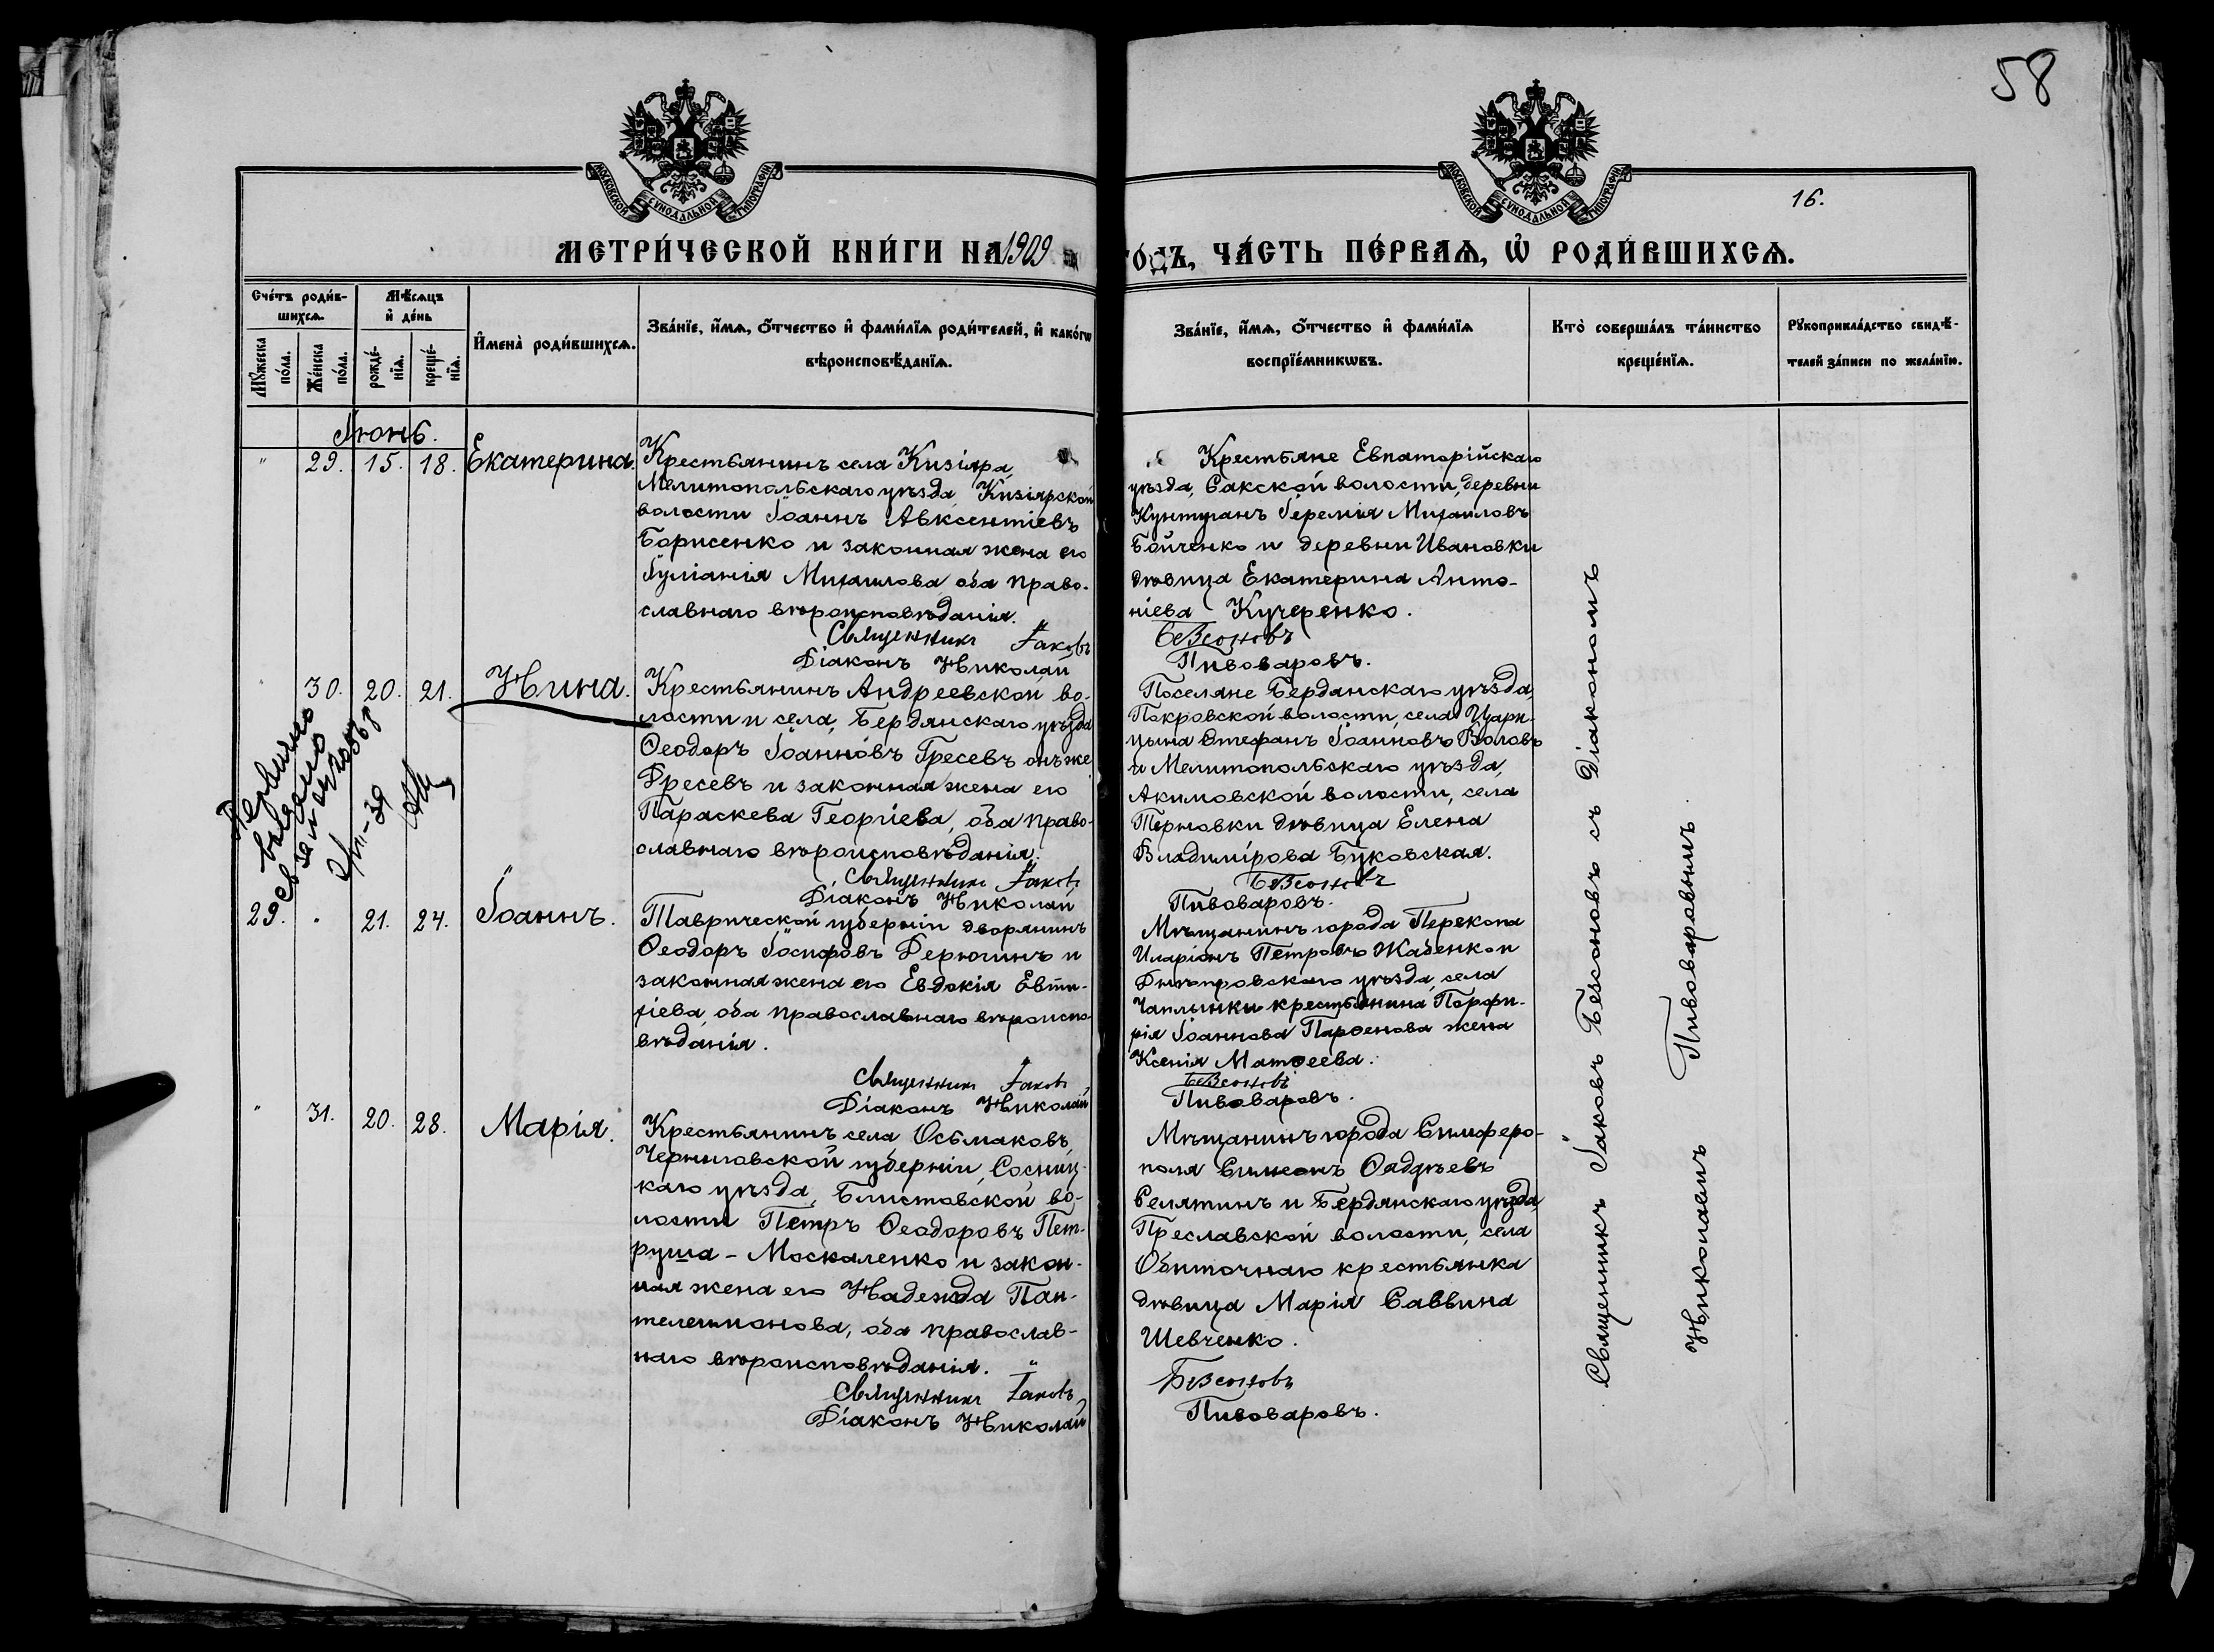 58
МОСКОВСКОЙ СѴНОДАЛЬНОЙ ТИПОГРАФІИ
МОСКОВСКОЙ СѴНОДАЛЬНОЙ ТИПОГРАФІИ
16.
МЕТРИ́ЧЕСКОЙ КНИ́ГИ НА 1909
ГО́ДЪ, ЧА́СТЬ ПЕ́РВАѦ, Ѡ҆ РОДИ́ВШИХСѦ.
Сче́тъ роди́в-
шихсѧ.
Мꙋ́жеска по́ла.
Же́нска по́ла.
Мѣ́сѧцъ
и҆ де́нь
рожде́-
нїѧ.
креще́-
нїѧ.
И҆мена̀ роди́вшихсѧ.
Зва́нїе, и҆́мѧ, ѻ҆́тчество и҆ фами́лїѧ роди́телей, и҆ како́гѡ
вѣроисповѣ́данїѧ.
Зва́нїе, и҆́мѧ, ѻ҆́тчество и҆ фами́лїѧ
воспрїе́мникѡвъ.
Кто̀ соверша́лъ та́инство
креще́нїѧ.
Рꙋкоприкла́дство свидѣ́-
телей за́писи по жела́нїю.
Іюнь.
" 29. 15. 18. Екатерина.
Крестьянинъ села Кизіяра,
Мелитопольскаго уѣзда, Кизіярской
волости Іоаннъ Авксентіевъ
Борисенко и законная жена его
Іуліанія Михаилова оба право-
славнаго вѣроисповѣданія.
Священникъ Іаковъ
Діаконъ Николай
Крестьяне Евпаторійскаго
уѣзда, Сакской волости, деревни
Кунтуганъ Іеремія Михаиловъ
Бойченко и деревни Ивановки
дѣвица Екатерина Анто-
ніева Кучеренко.
Безсоновъ
Пивоваровъ.
" 30. 20. 21. Нина.
Крестьянинъ Андреевской во-
лости и села, Бердянскаго уѣзда
Ѳеодоръ Іоанновъ Гресевъ онъ же
Дресевъ и законная жена его
Параскева Георгіева, оба право-
славнаго вѣроисповѣданія.
Священникъ Іаковъ
Діаконъ Николай
Поселяне Бердянскаго уѣзда,
Покровской волости, села Цари-
цына Стефанъ Іоанновъ Воловъ
и Мелитопольскаго уѣзда,
Акимовской волости, села
Терновки дѣвица Елена
Владимірова Буковская.
Безсоновъ
Пивоваровъ.
29. " 21. 24. Іоаннъ.
Таврической губерніи дворянинъ
Ѳеодоръ Іосифовъ Дерюгинъ и
законная жена его Евдокія Евти-
хіева, оба православнаго вѣроиспо-
вѣданія.
Священникъ Іаковъ
Діаконъ Николай
Мѣщанинъ города Перекопа
Иларіонъ Петровъ Жабенко и
Днѣпровскаго уѣзда, села
Чаплынки крестьянина Порфи-
рія Іоаннова Парѳенова жена
Ксенія Матѳеева.
Безсоновъ
Пивоваровъ.
" 31. 20. 28. Марія.
Крестьянинъ села Осьмаковъ
Черниговской губерніи, Сосниц-
каго уѣзда, Блистовской во-
лости Петръ Ѳеодоровъ Пет-
руша - Москаленко и закон-
ная жена его Надежда Пан-
телеимонова, оба православ-
наго вѣроисповѣданія.
Священникъ Іаковъ
Діаконъ Николай
Мѣщанинъ города Симферо-
поля Симеонъ Ѳаддѣевъ
Селятинъ и Бердянскаго уѣзда,
Преславской волости, села
Обиточнаго крестьянка
дѣвица Марія Саввина
Шевченко.
Безсоновъ
Пивоваровъ.
Священникъ Іаковъ Безсоновъ съ Діакономъ
Николаемъ Пивоваровымъ.